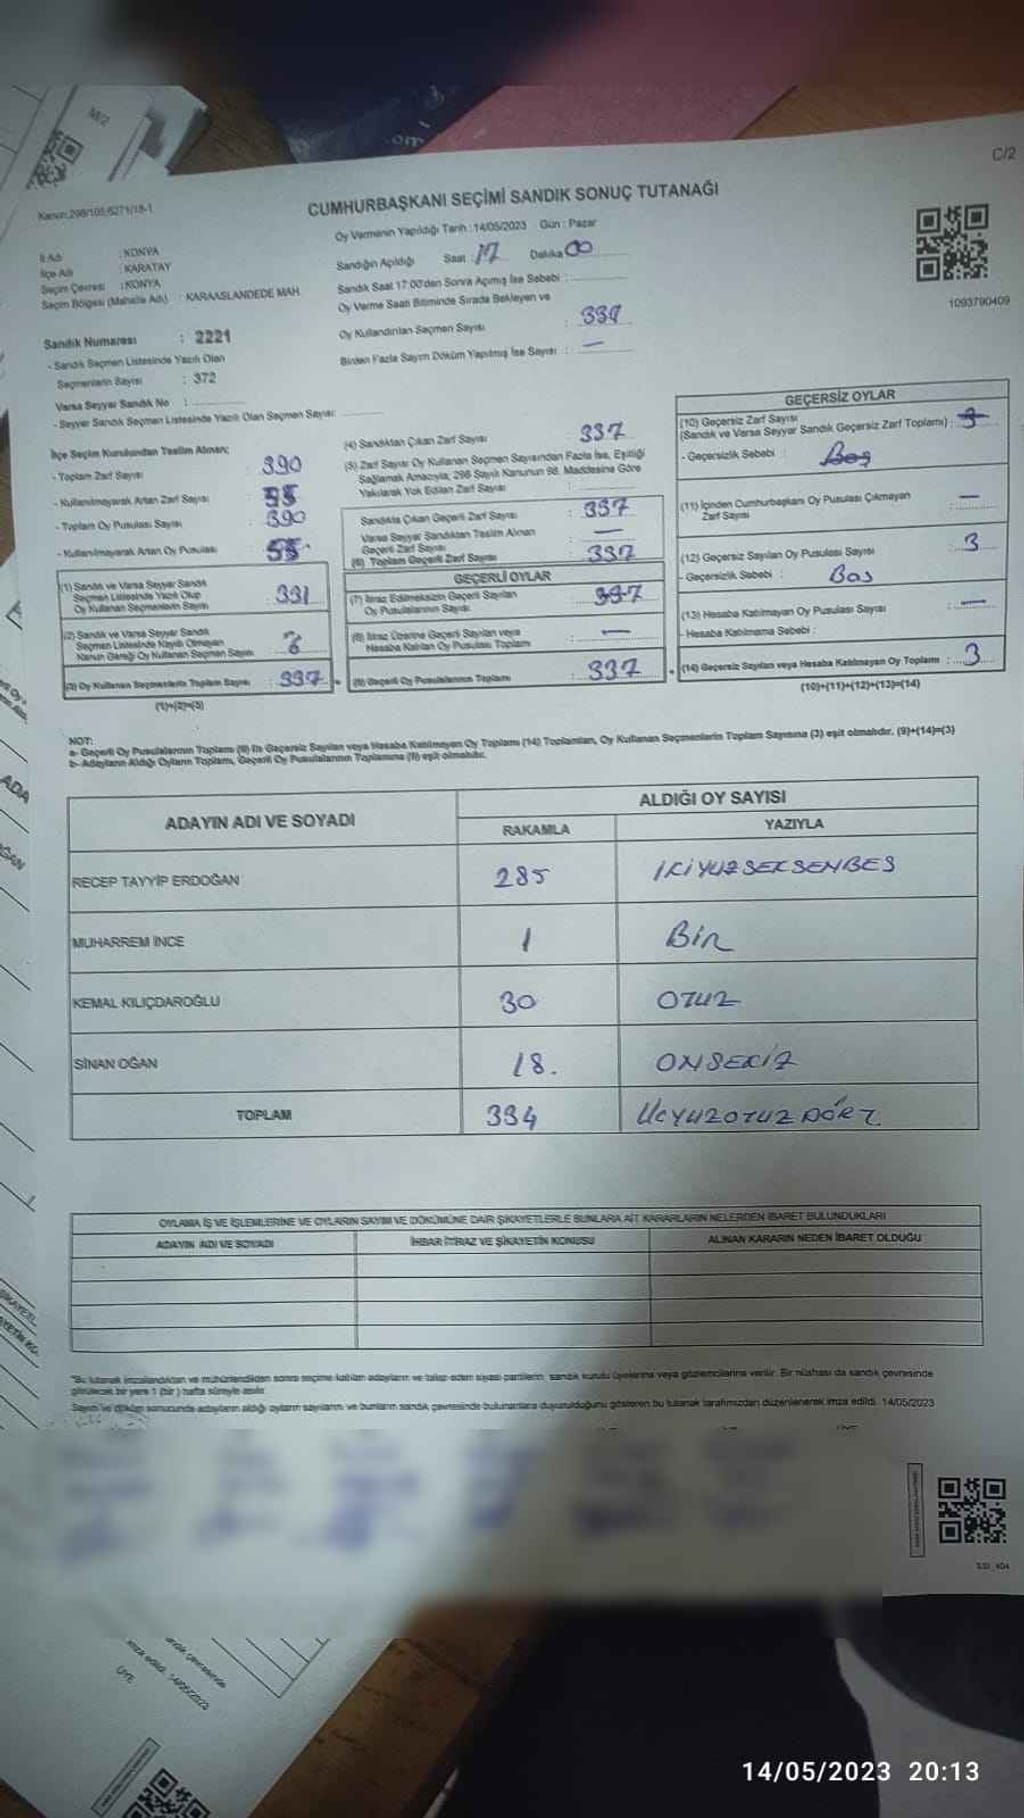 C/2
Kanun:298/105,6271/18-1
CUMHURBAŞKANI SEÇİMİ SANDIK SONUÇ TUTANAĞI
Oy Vermenin Yapıldığı Tarih : 14/05/2023 Gün : Pazar
İl Adı : KONYA
İlçe Adı : KARATAY
Seçim Çevresi : KONYA
Seçim Bölgesi (Mahalle Adı) : KARAASLANDEDE MAH.
Sandık Numarası : 2221
- Sandık Seçmen Listesinde Yazılı Olan
Seçmenlerin Sayısı : 372
Varsa Seyyar Sandık No :
- Seyyar Sandık Seçmen Listesinde Yazılı Olan Seçmen Sayısı:
Sandığın Açıldığı Saat : 17 Dakika 00
Sandık Saat 17:00'den Sonra Açılmış İse Sebebi :
Oy Verme Saati Bitiminde Sırada Bekleyen ve
Oy Kullandırılan Seçmen Sayısı : 337
Birden Fazla Sayım Döküm Yapılmış İse Sayısı : —
1093790409
İlçe Seçim Kurulundan Teslim Alınan;
- Toplam Zarf Sayısı : 390
- Kullanılmayarak Artan Zarf Sayısı :
- Toplam Oy Pusulası Sayısı : 390
- Kullanılmayarak Artan Oy Pusulası :
(1) Sandık ve Varsa Seyyar Sandık
Seçmen Listesinde Yazılı Olup
Oy Kullanan Seçmenlerin Sayısı : 331
(2) Sandık ve Varsa Seyyar Sandık
Seçmen Listesinde Kayıtlı Olmayan
Kanun Gereği Oy Kullanan Seçmen Sayısı :
(3) Oy Kullanan Seçmenlerin Toplam Sayısı : 337
(1)+(2)=(3)
(4) Sandıktan Çıkan Zarf Sayısı : 337
(5) Zarf Sayısı Oy Kullanan Seçmen Sayısından Fazla İse, Eşitliği
Sağlamak Amacıyla, 298 Sayılı Kanunun 98. Maddesine Göre
Yakılarak Yok Edilen Zarf Sayısı :
Sandıkta Çıkan Geçerli Zarf Sayısı : 337
Varsa Seyyar Sandıktan Teslim Alınan
Geçerli Zarf Sayısı : —
(6) Toplam Geçerli Zarf Sayısı : 337
GEÇERLİ OYLAR
(7) İtiraz Edilmeksizin Geçerli Sayılan
Oy Pusulalarının Sayısı : 337
(8) İtiraz Üzerine Geçerli Sayılan veya
Hesaba Katılan Oy Pusulası Toplamı : —
(9) Geçerli Oy Pusulalarının Toplamı : 337
GEÇERSİZ OYLAR
(10) Geçersiz Zarf Sayısı
(Sandık ve Varsa Seyyar Sandık Geçersiz Zarf Toplamı) : 3
- Geçersizlik Sebebi : Boş
(11) İçinden Cumhurbaşkanı Oy Pusulası Çıkmayan
Zarf Sayısı : —
(12) Geçersiz Sayılan Oy Pusulası Sayısı : 3
- Geçersizlik Sebebi : Bos
(13) Hesaba Katılmayan Oy Pusulası Sayısı : —
- Hesaba Katılmama Sebebi :
(14) Geçersiz Sayılan veya Hesaba Katılmayan Oy Toplamı : 3
(10)+(11)+(12)+(13)=(14)
NOT:
a- Geçerli Oy Pusulalarının Toplamı (9) ile Geçersiz Sayılan veya Hesaba Katılmayan Oy Toplamı (14) Toplamları, Oy Kullanan Seçmenlerin Toplam Sayısına (3) eşit olmalıdır. (9)+(14)=(3)
b- Adayların Aldığı Oyların Toplamı, Geçerli Oy Pusulalarının Toplamına (9) eşit olmalıdır.
ADAYIN ADI VE SOYADI
ALDIĞI OY SAYISI
RAKAMLA YAZIYLA
RECEP TAYYİP ERDOĞAN 285 İKİYUZSEKSENBES
MUHARREM İNCE 1 Bir
KEMAL KILIÇDAROĞLU 30 OTUZ
SİNAN OĞAN 18. ONSEKİZ
TOPLAM 334 ÜCYUZOTUZDÖRT
OYLAMA İŞ VE İŞLEMLERİNE VE OYLARIN SAYIM VE DÖKÜMÜNE DAİR ŞİKAYETLERLE BUNLARA AİT KARARLARIN NELERDEN İBARET BULUNDUKLARI
ADAYIN ADI VE SOYADI İHBAR İTİRAZ VE ŞİKAYETİN KONUSU ALINAN KARARIN NEDEN İBARET OLDUĞU
*Bu tutanak imzalandıktan ve mühürlendikten sonra seçime katılan adayların ve talep eden siyasi partilerin, sandık kurulu üyelerine veya gözlemcilerine verilir. Bir nüshası da sandık çevresinde
görülecek bir yere 1 (bir) hafta süreyle asılır.
Sayım ve döküm sonucunda adayların aldığı oyların sayılarını ve bunların sandık çevresinde bulunanlara duyurulduğunu gösteren bu tutanak tarafımızdan düzenlenerek imza edildi. 14/05/2023
ÜYE
14/05/2023 20:13